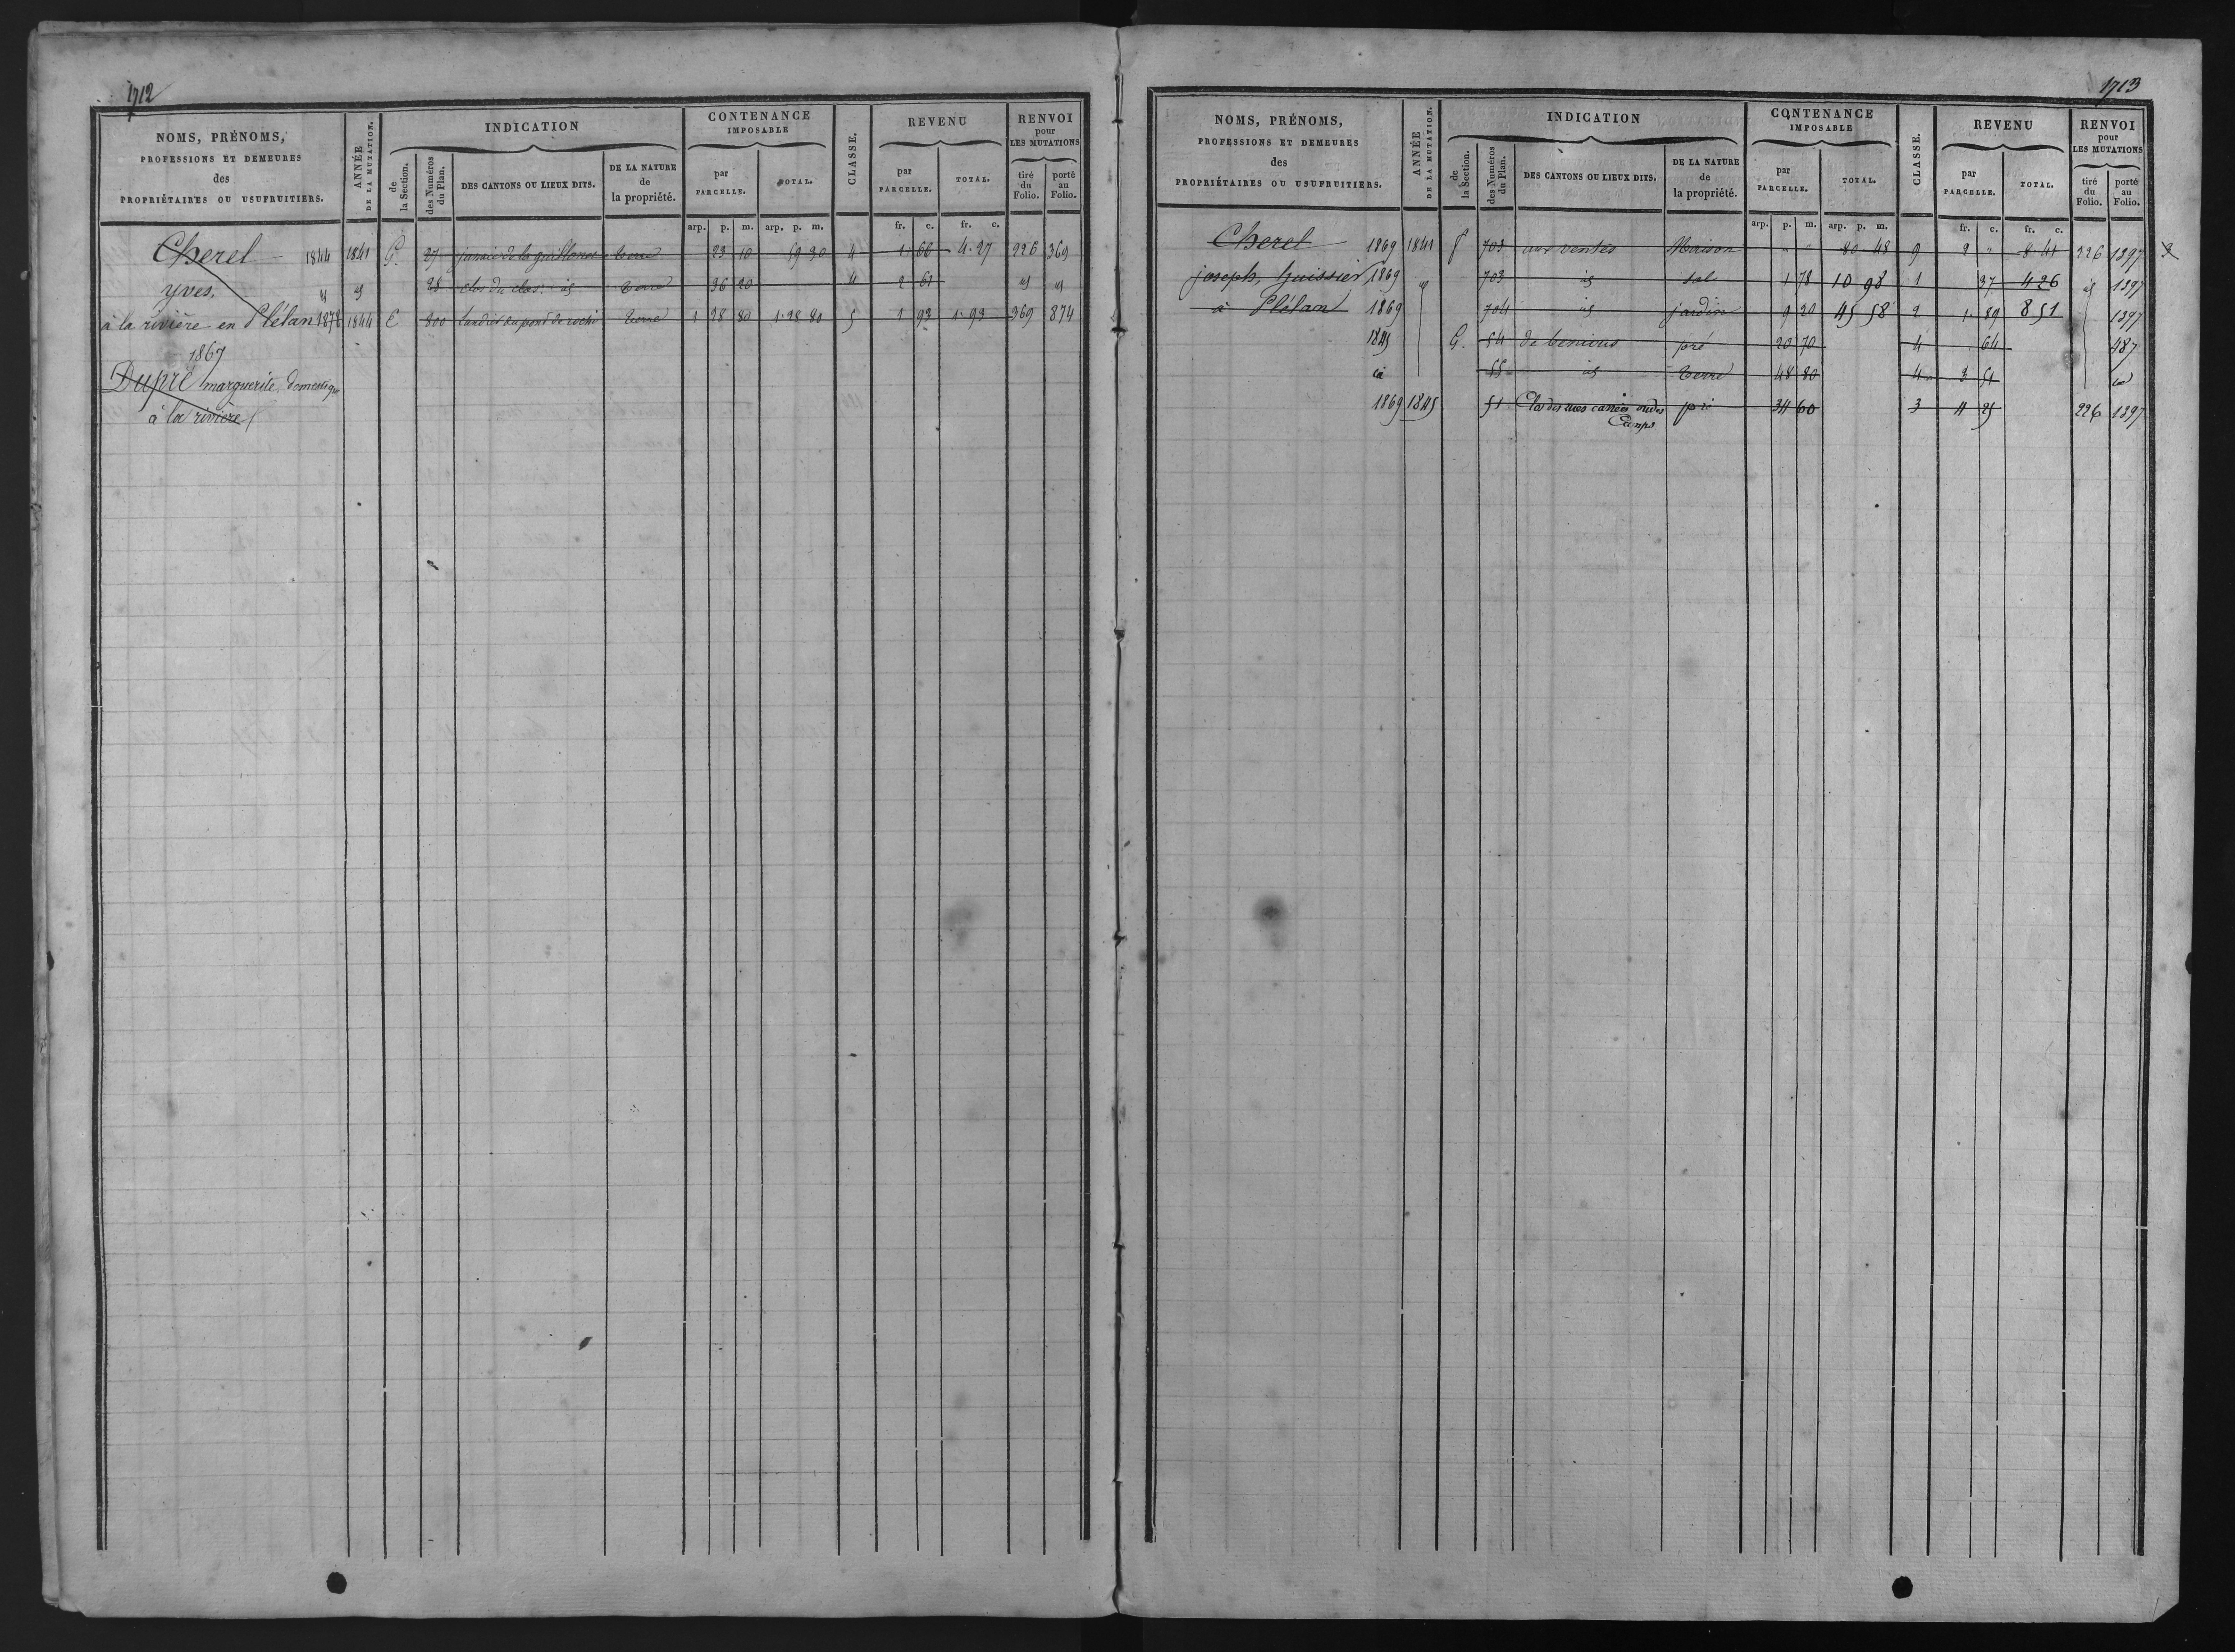 1712
NOMS, PRÉNOMS,
PROFESSIONS ET DEMEURES
des
PROPRIÉTAIRES OU USUFRUITIERS.
ANNÉE
DE LA MUTATION.
INDICATION
de
la Section.
des Numéros
du Plan.
DES CANTONS OU LIEUX DITS.
DE LA NATURE
de
la propriété.
CONTENANCE
IMPOSABLE
par
PARCELLE.
TOTAL.
CLASSE.
REVENU
par
PARCELLE.
TOTAL.
RENVOI
pour
LES MUTATIONS
tiré
du
Folio.
porté
au
Folio.
arp. p. m. arp. p. m. fr. c. fr. c.
Cherel 1844 1841 G. 27 de la terre 23 10 59 30 4 1 66 4.27 226 369
yves, id id 28 clos du clos id terre 36 20 4 2 61 id id
à la rivière en Plélan 1878 1844 E 800 du pont de terre 1 28 80 1.28 80 5 1 93 1.93 369 874
1867
Dupré marguerite, domestique
à la rivière
1713
NOMS, PRÉNOMS,
PROFESSIONS ET DEMEURES
des
PROPRIÉTAIRES OU USUFRUITIERS.
ANNÉE
DE LA MUTATION.
INDICATION
de
la Section.
des Numéros
du Plan.
DES CANTONS OU LIEUX DITS.
DE LA NATURE
de
la propriété.
CONTENANCE
IMPOSABLE
par
PARCELLE.
TOTAL.
CLASSE.
REVENU
par
PARCELLE.
TOTAL.
RENVOI
pour
LES MUTATIONS
tiré
du
Folio.
porté
au
Folio.
arp. p. m. arp. p. m. fr. c. fr. c.
Cherel 1869 1841 f 703 aux ventes Maison " " 80 48 9 2 " 8 41 226 1397
joseph, huissier 1869 id 703 id sol 1 78 10 98 1 37 4 26 id 1397
à Plélan 1869 704 id jardin 9 20 45 58 2 1.89 8 51 1397
1845 G. 54 pré 20 70 4 64 487
id 55 id terre 48 80 4 3 51 id
1869 1845 51 Clos des pré 34 60 3 4 25 226 1397
Camps